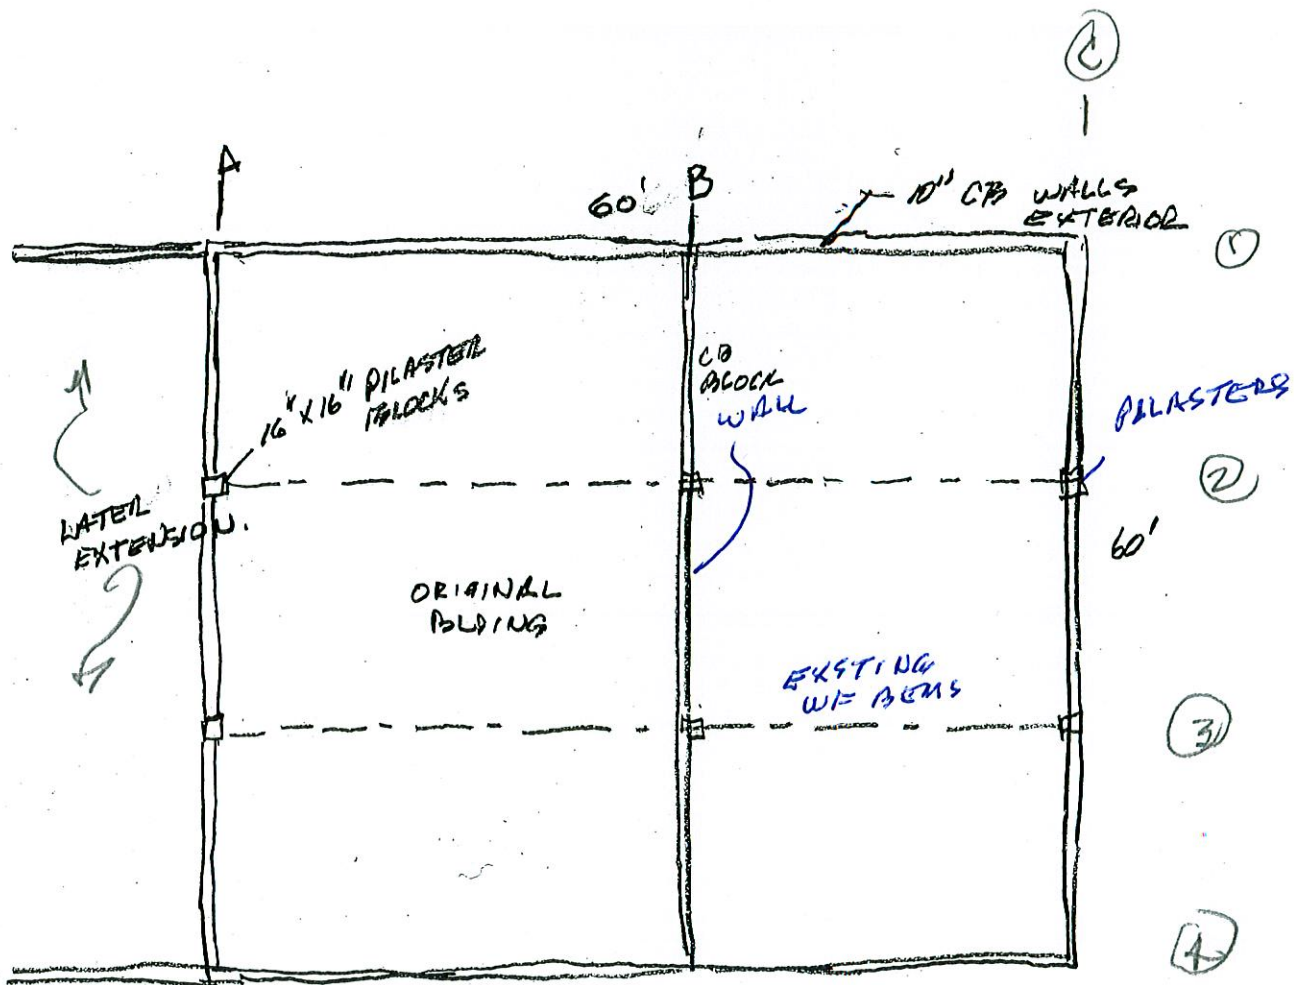 C
A
60'
B
10" CB WALLS
EXTERIOR
1
16" X 16" PILASTER
BLOCKS
CB
BLOCK
WALL
PILASTERS
2
LATER
EXTENSION.
60'
ORIGINAL
BLDING
EXSTING
WF BEMS
3
4